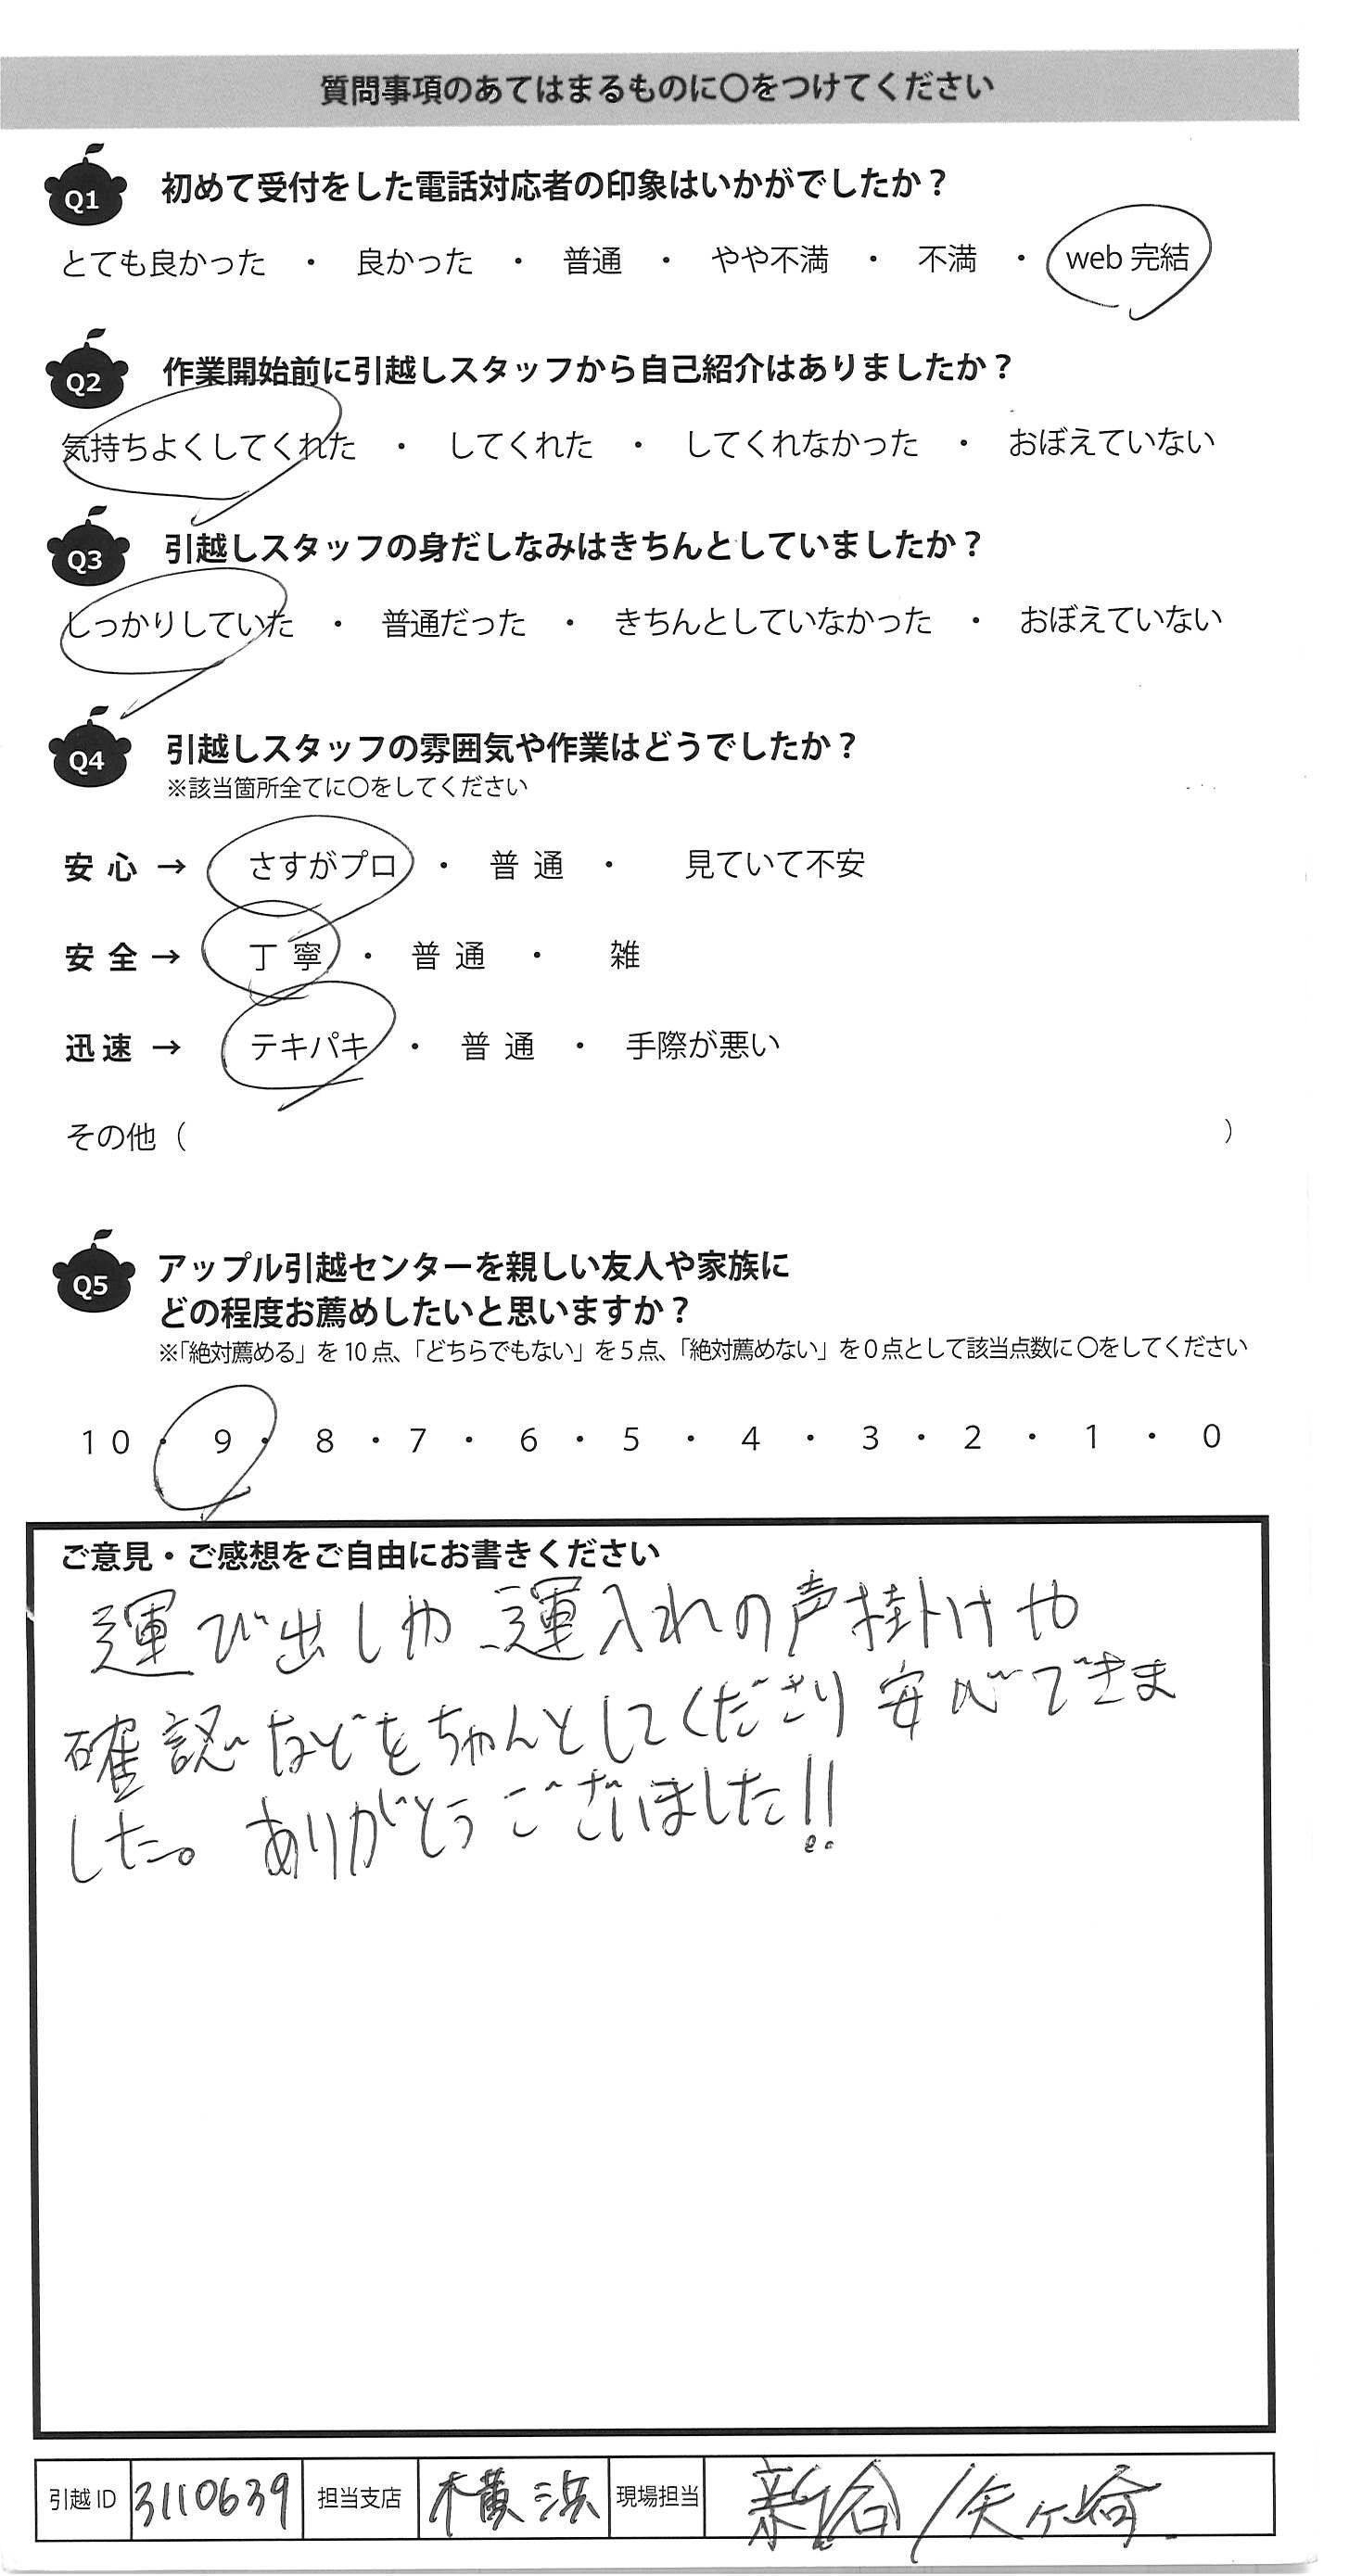 質問事項のあてはまるものに〇をつけてください
Q1 初めて受付をした電話対応者の印象はいかがでしたか？
とても良かった ・ 良かった ・ 普通 ・ やや不満 ・ 不満 ・ web 完結
Q2 作業開始前に引越しスタッフから自己紹介はありましたか？
気持ちよくしてくれた ・ してくれた ・ してくれなかった ・ おぼえていない
Q3 引越しスタッフの身だしなみはきちんとしていましたか？
しっかりしていた ・ 普通だった ・ きちんとしていなかった ・ おぼえていない
Q4 引越しスタッフの雰囲気や作業はどうでしたか？
※該当箇所全てに〇をしてください
安心 → さすがプロ ・ 普通 ・ 見ていて不安
安全 → 丁寧 ・ 普通 ・ 雑
迅速 → テキパキ ・ 普通 ・ 手際が悪い
その他（ ）
Q5 アップル引越センターを親しい友人や家族に
どの程度お薦めしたいと思いますか？
※「絶対薦める」を10点、「どちらでもない」を5点、「絶対薦めない」を0点として該当点数に〇をしてください
10 ・ 9 ・ 8 ・ 7 ・ 6 ・ 5 ・ 4 ・ 3 ・ 2 ・ 1 ・ 0
ご意見・ご感想をご自由にお書きください
運び出しや運入れの声掛けや
確認などをちゃんとしてくださり安心できま
した。ありがとうございました!!
引越ID 3110639 担当支店 横浜 現場担当 新谷/矢ヶ崎